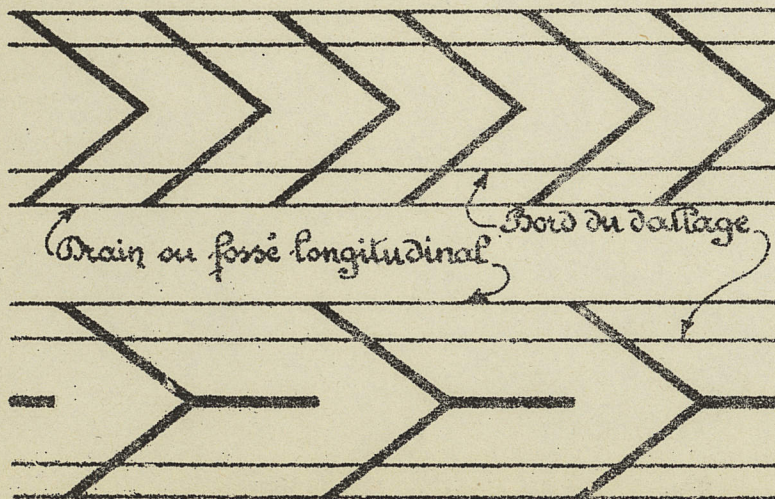 Bord du dallage
Drain ou fossé longitudinal